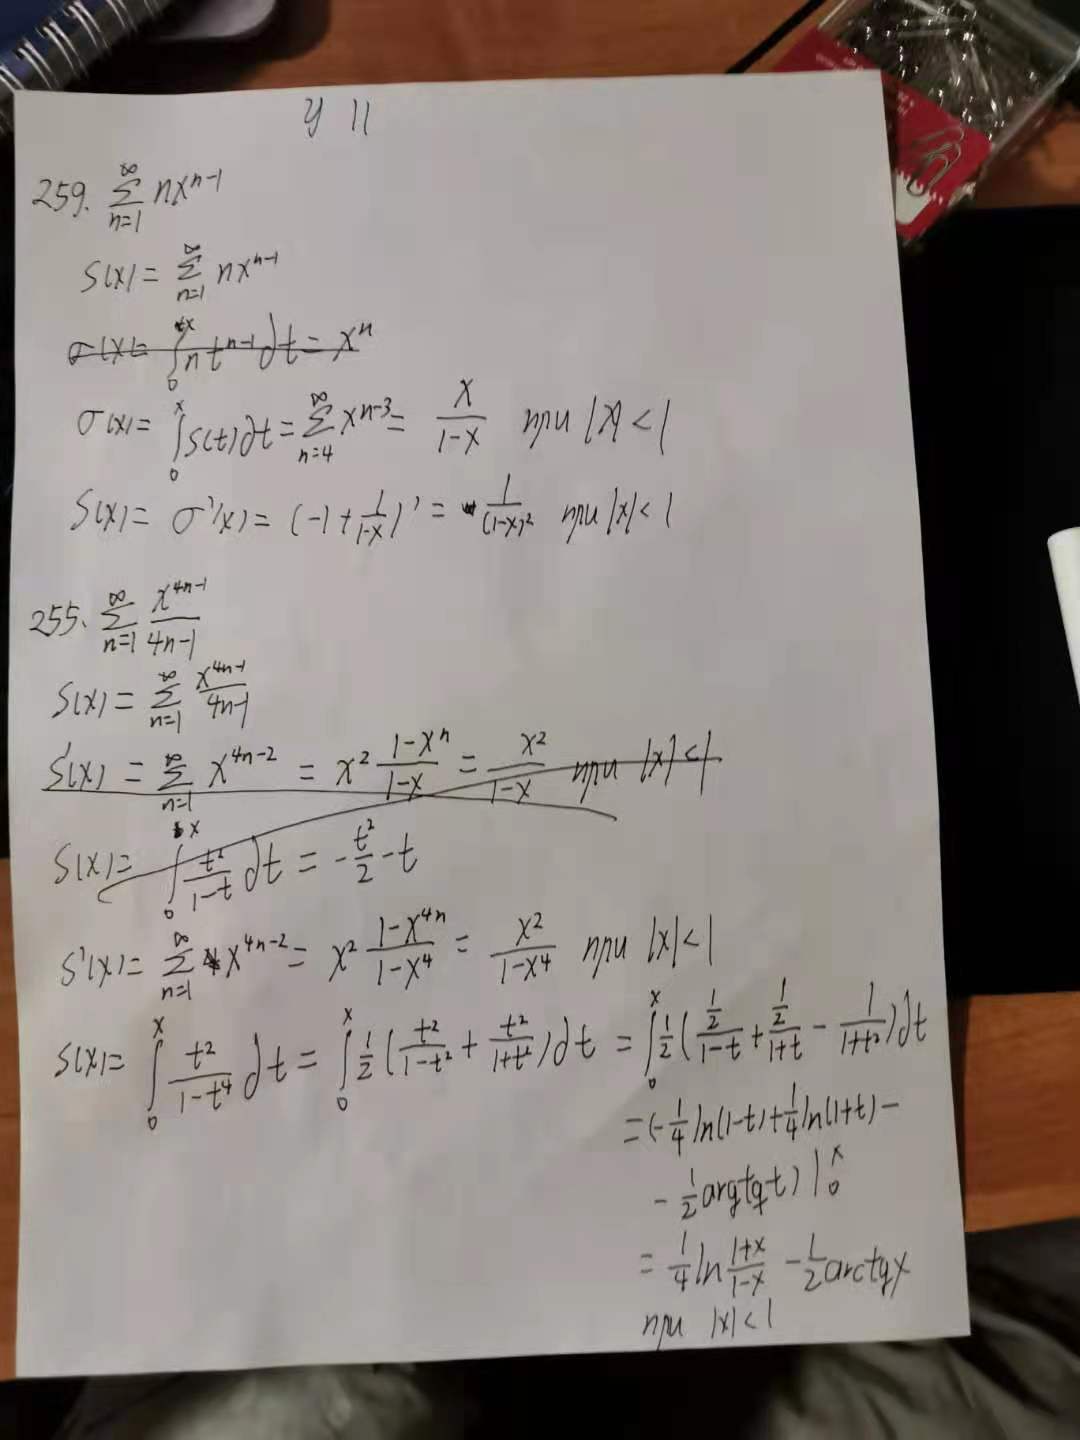 У 11
259. ∑_{n=1}^{∞} nx^{n-1}
S(x) = ∑_{n=1}^{∞} nx^{n-1}
σ(x) = ∫_0^x nt^{n-1} dt = x^n
σ(x) = ∫_0^x S(t)dt = ∑_{n=4}^{∞} x^{n-3} = x/(1-x) при |x| < 1
S(x) = σ'(x) = (-1 + 1/(1-x))' = 1/(1-x)² при |x| < 1
255. ∑_{n=1}^{∞} x^{4n-1}/(4n-1)
S(x) = ∑_{n=1}^{∞} x^{4n-1}/(4n-1)
S'(x) = ∑_{n=1}^{∞} x^{4n-2} = x² (1-x^n)/(1-x) = x²/(1-x) при |x| < 1
S(x) = ∫_0^x t²/(1-t) dt = -t²/2 - t
S'(x) = ∑_{n=1}^{∞} x^{4n-2} = x² (1-x^{4n})/(1-x⁴) = x²/(1-x⁴) при |x| < 1
S(x) = ∫_0^x t²/(1-t⁴) dt = ∫_0^x 1/2 (t²/(1-t²) + t²/(1+t²)) dt = ∫_0^x 1/2 ((1/2)/(1-t) + (1/2)/(1+t) - 1/(1+t²)) dt
= (-1/4 ln(1-t) + 1/4 ln(1+t) -
- 1/2 argtgt) |_0^x
= 1/4 ln (1+x)/(1-x) - 1/2 arctgx
при |x| < 1